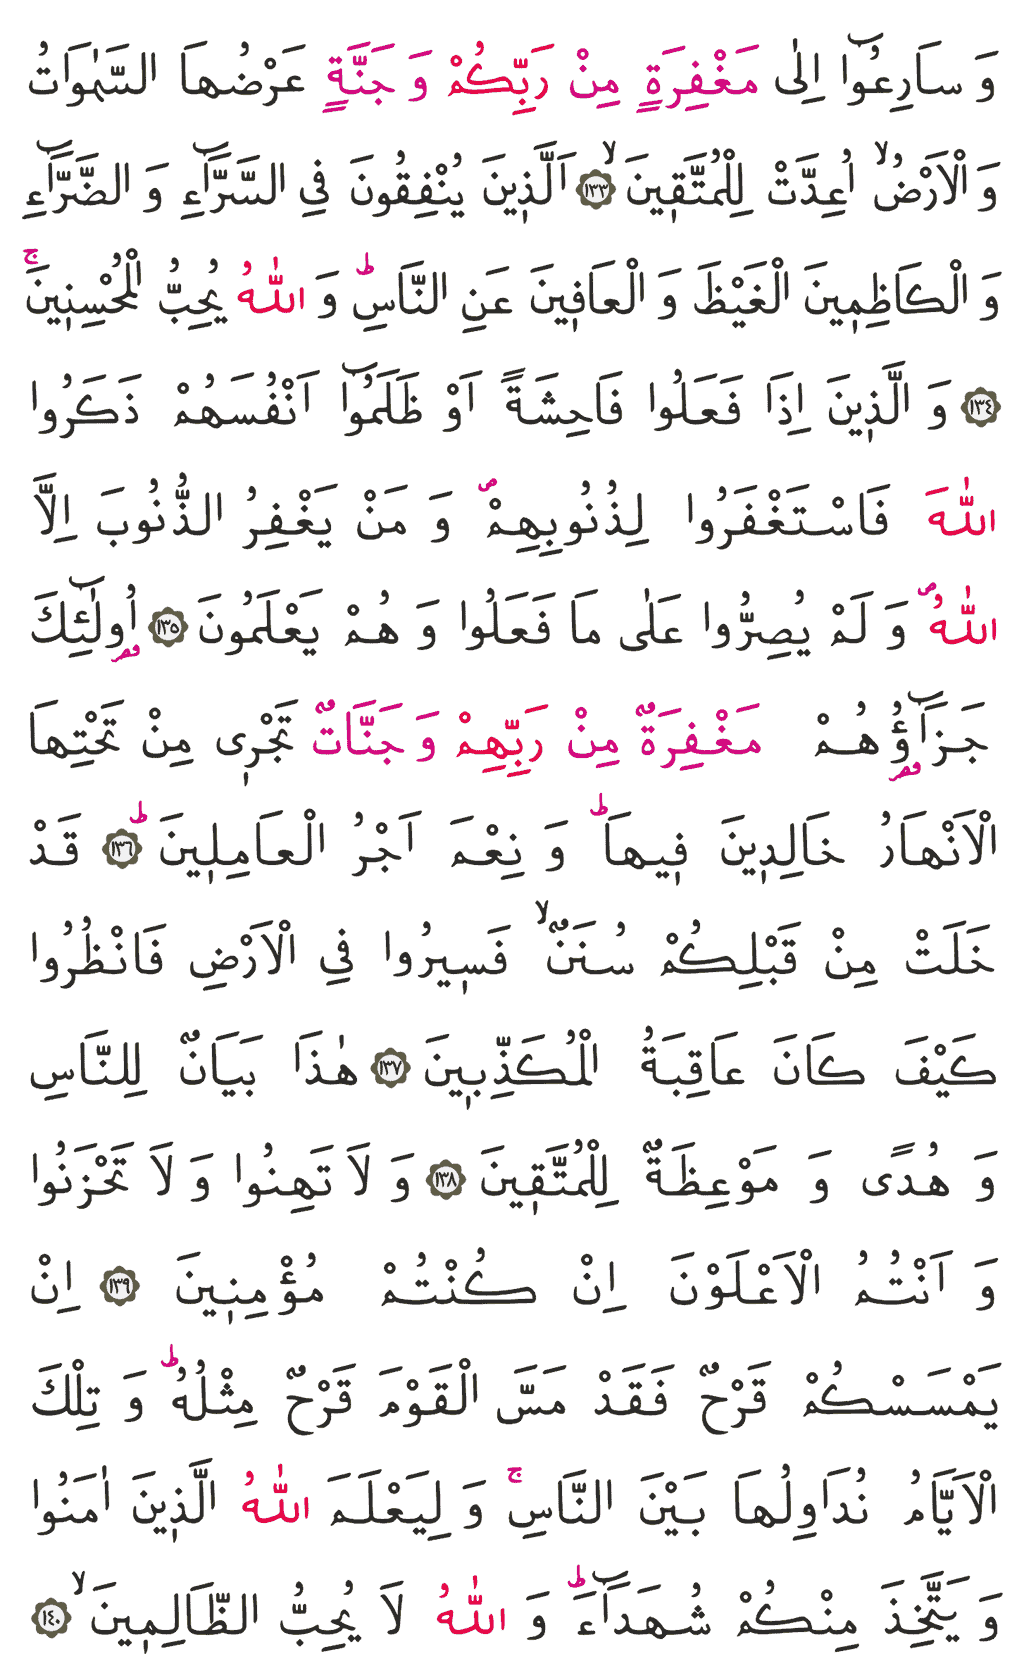 وَ سَارِعُٓوا اِلٰى مَغْفِرَةٍ مِنْ رَبِّكُمْ وَ جَنَّةٍ عَرْضُهَا السَّمٰوَاتُ
وَ الْاَرْضُۙ اُعِدَّتْ لِلْمُتَّق۪ينَۙ ﴿١٣٣﴾ اَلَّذ۪ينَ يُنْفِقُونَ فِي السَّرَّٓاءِ وَ الضَّرَّٓاءِ
وَ الْكَاظِم۪ينَ الْغَيْظَ وَ الْعَاف۪ينَ عَنِ النَّاسِۜ وَ اللّٰهُ يُحِبُّ الْمُحْسِن۪ينَۚ
﴿١٣٤﴾ وَ الَّذ۪ينَ اِذَا فَعَلُوا فَاحِشَةً اَوْ ظَلَمُٓوا اَنْفُسَهُمْ ذَكَرُوا
اللّٰهَ فَاسْتَغْفَرُوا لِذُنُوبِهِمْۖ وَ مَنْ يَغْفِرُ الذُّنُوبَ اِلَّا
اللّٰهُۖ وَ لَمْ يُصِرُّوا عَلٰى مَا فَعَلُوا وَ هُمْ يَعْلَمُونَ ﴿١٣٥﴾ اُو۬لٰٓئِكَ
جَزَٓاؤُ۬هُمْ مَغْفِرَةٌ مِنْ رَبِّهِمْ وَ جَنَّاتٌ تَجْر۪ي مِنْ تَحْتِهَا
الْاَنْهَارُ خَالِد۪ينَ ف۪يهَاۜ وَ نِعْمَ اَجْرُ الْعَامِل۪ينَۜ ﴿١٣٦﴾ قَدْ
خَلَتْ مِنْ قَبْلِكُمْ سُنَنٌۙ فَس۪يرُوا فِي الْاَرْضِ فَانْظُرُوا
كَيْفَ كَانَ عَاقِبَةُ الْمُكَذِّب۪ينَ ﴿١٣٧﴾ هٰذَا بَيَانٌ لِلنَّاسِ
وَ هُدًى وَ مَوْعِظَةٌ لِلْمُتَّق۪ينَ ﴿١٣٨﴾ وَ لَا تَهِنُوا وَ لَا تَحْزَنُوا
وَ اَنْتُمُ الْاَعْلَوْنَ اِنْ كُنْتُمْ مُؤْمِن۪ينَ ﴿١٣٩﴾ اِنْ
يَمْسَسْكُمْ قَرْحٌ فَقَدْ مَسَّ الْقَوْمَ قَرْحٌ مِثْلُهُۜ وَ تِلْكَ
الْاَيَّامُ نُدَاوِلُهَا بَيْنَ النَّاسِۚ وَ لِيَعْلَمَ اللّٰهُ الَّذ۪ينَ اٰمَنُوا
وَ يَتَّخِذَ مِنْكُمْ شُهَدَٓاءَۜ وَ اللّٰهُ لَا يُحِبُّ الظَّالِم۪ينَۙ ﴿١٤٠﴾